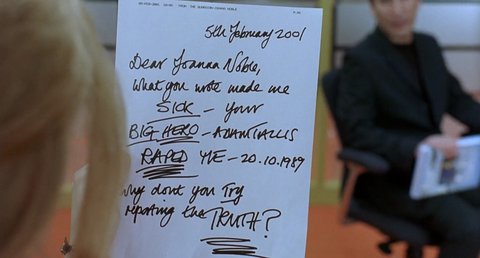 5th February 2001
Dear Joanna Noble,
What you wrote made me
SICK - Your
BIG HERO - ADAM TALLIS
RAPED ME - 20.10.1989
why dont you Try
reporting the TRUTH?